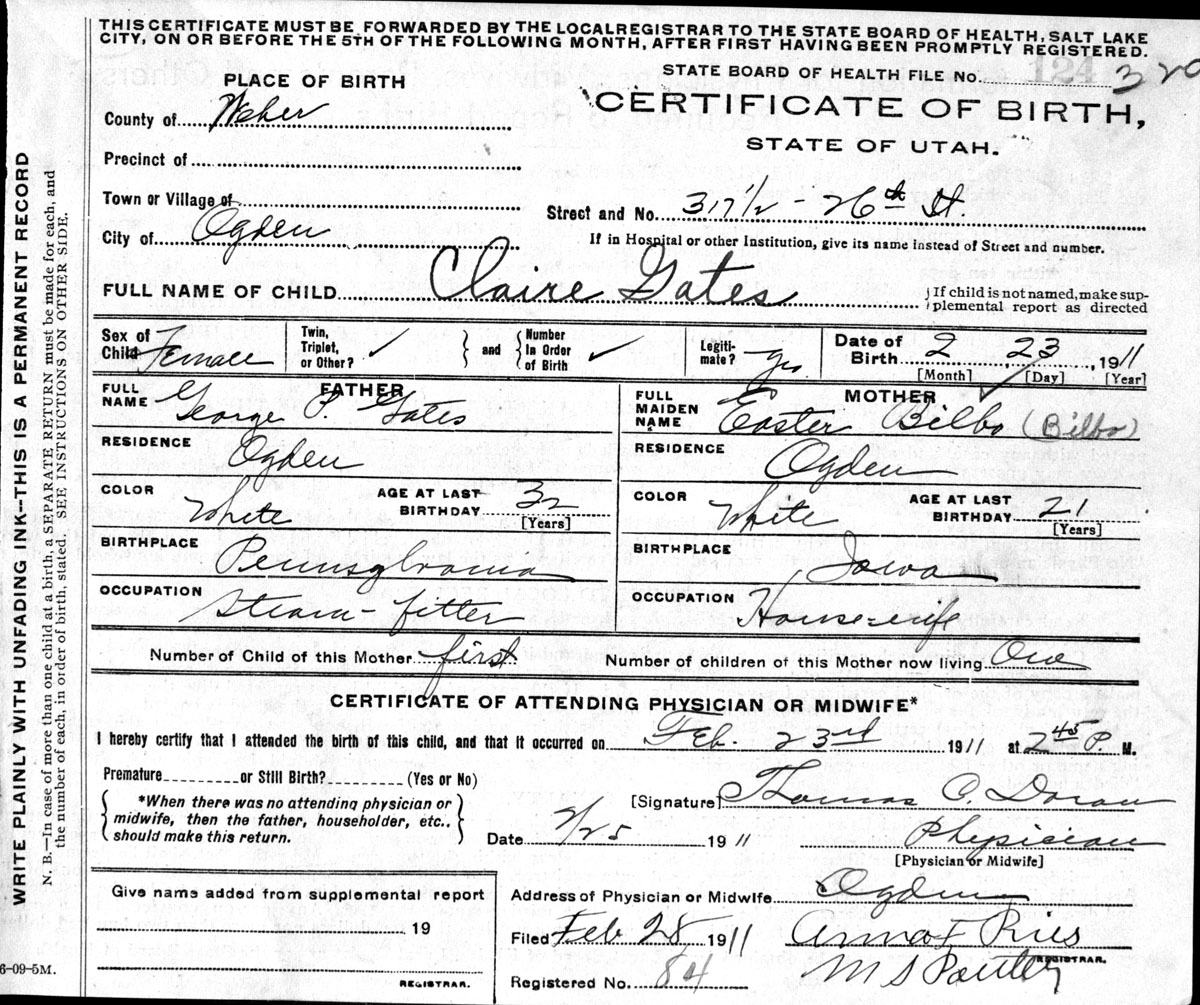 THIS CERTIFICATE MUST BE FORWARDED BY THE LOCAL REGISTRAR TO THE STATE BOARD OF HEALTH, SALT LAKE
CITY, ON OR BEFORE THE 5TH OF THE FOLLOWING MONTH, AFTER FIRST HAVING BEEN PROMPTLY REGISTERED.
WRITE PLAINLY WITH UNFADING INK--THIS IS A PERMANENT RECORD
N. B.—In case of more than one child at a birth, a SEPARATE RETURN must be made for each, and
the number of each, in order of birth, stated. SEE INSTRUCTIONS ON OTHER SIDE.
STATE BOARD OF HEALTH FILE No. 124 320
PLACE OF BIRTH
CERTIFICATE OF BIRTH,
STATE OF UTAH.
County of Weber
Precinct of
Town or Village of
Street and No. 317 1/2 - 26th St.
City of Ogden
If in Hospital or other Institution, give its name instead of Street and number.
FULL NAME OF CHILD Claire Gates
If child is not named, make sup-
plemental report as directed
Sex of Child Female
Twin, Triplet, or Other? ✓
and
Number In Order of Birth ✓
Legiti-mate? yes
Date of Birth 2 23 1911
[Month] [Day] [Year]
FATHER
FULL NAME George P. Gates
MOTHER
FULL MAIDEN NAME Easter Bilbo (Bilbo)
RESIDENCE Ogden
RESIDENCE Ogden
COLOR White AGE AT LAST BIRTHDAY 32 [Years]
COLOR White AGE AT LAST BIRTHDAY 21 [Years]
BIRTHPLACE Pennsylvania
BIRTHPLACE Iowa
OCCUPATION Steam-fitter
OCCUPATION House-wife
Number of Child of this Mother first
Number of children of this Mother now living One
CERTIFICATE OF ATTENDING PHYSICIAN OR MIDWIFE*
I hereby certify that I attended the birth of this child, and that it occurred on Feb. 23rd 1911 at 2 45 P. M.
Premature or Still Birth? (Yes or No)
*When there was no attending physician or
midwife, then the father, householder, etc.,
should make this return.
[Signature] Thomas C. Doran
Date 2/25 1911
Physician
[Physician or Midwife]
Give name added from supplemental report
19
REGISTRAR.
Address of Physician or Midwife Ogden
Filed Feb 28, 1911 Anna F Ries
REGISTRAR.
Registered No. 84
6-09-5M.